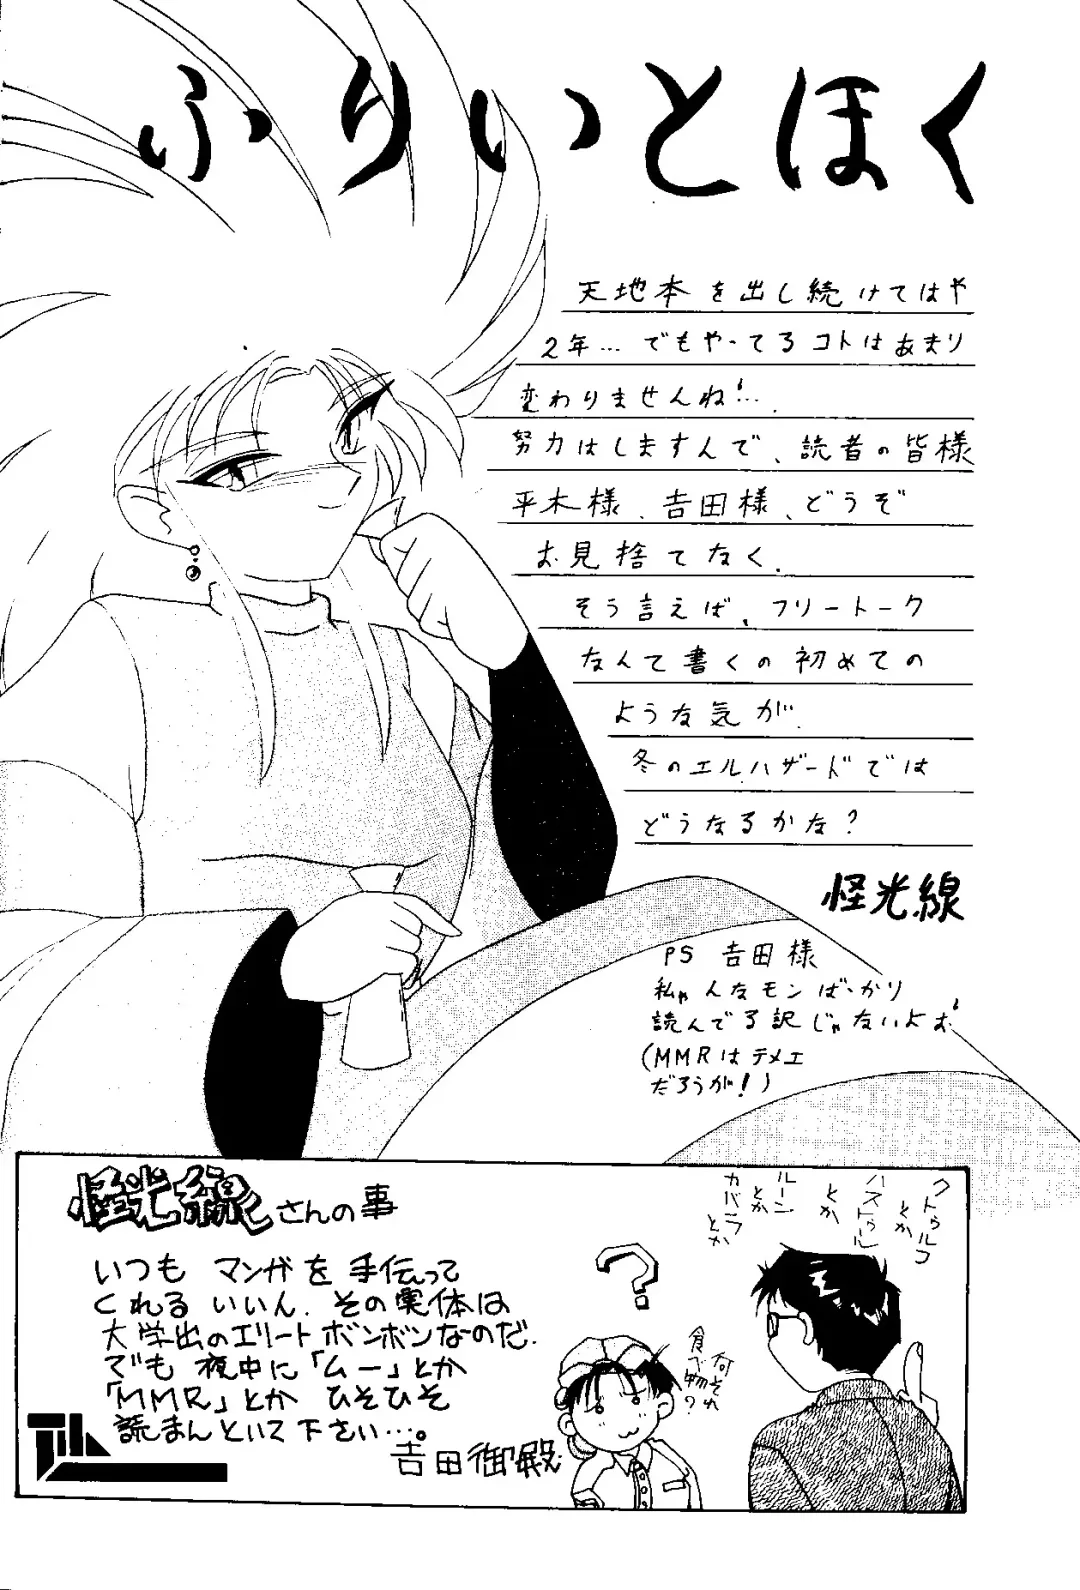 ふりいとほく
天地本を出し続けてはや
2年…でもやってるコトはあまり
変わりませんね…
努力はしますんで、読者の皆様
平木様、吉田様、どうぞ
お見捨てなく.
そう言えば、フリートーク
なんて書くの初めての
ような気が.
冬のエルハザードでは
どうなるかな?
怪光線
PS 吉田様
私ゃんなモンばっかり
読んでる訳じゃないよぉ
(MMRはテメエ
だろうが!)
怪光線さんの事
いつも マンガを 手伝って
くれる いいん. その実体は
大学出のエリートボンボンなのだ.
でも 夜中に「ムー」とか
「MMR」とか ひそひそ
読まんといて下さい…。
吉田御殿
クトゥルフ
とか
ハストゥル
とか
ルーン
とか
カバラ
とか
?
何それ
食べ物?